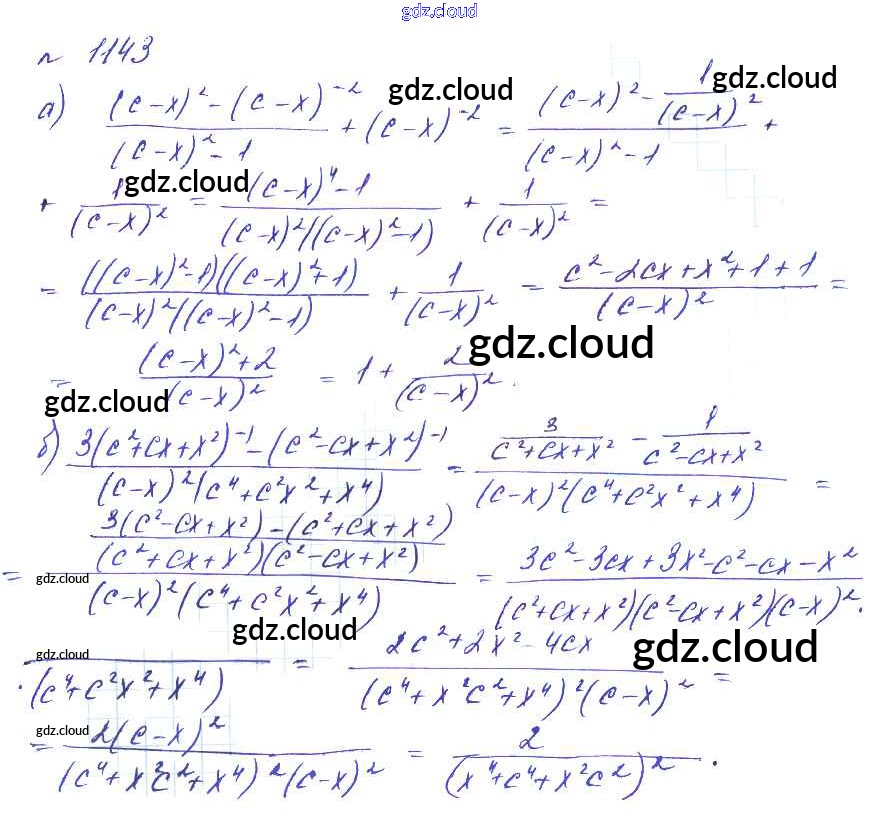 gdz.cloud
n 1143
а) ((c-x)² - (c-x)⁻²)/((c-x)² - 1) + (c-x)⁻² = ((c-x)² - 1/(c-x)²)/((c-x)² - 1) +
gdz.cloud gdz.cloud
+ 1/(c-x)² = ((c-x)⁴ - 1)/((c-x)²((c-x)² - 1)) + 1/(c-x)² =
gdz.cloud
= (((c-x)² - 1)((c-x)² + 1))/((c-x)²((c-x)² - 1)) + 1/(c-x)² = (c² - 2cx + x² + 1 + 1)/(c-x)² =
gdz.cloud
= ((c-x)² + 2)/(c-x)² = 1 + 2/(c-x)².
gdz.cloud
б) (3(c² + cx + x²)⁻¹ - (c² - cx + x²)⁻¹)/((c-x)²(c⁴ + c²x² + x⁴)) = (3/(c² + cx + x²) - 1/(c² - cx + x²))/((c-x)²(c⁴ + c²x² + x⁴)) =
= ((3(c² - cx + x²) - (c² + cx + x²))/((c² + cx + x²)(c² - cx + x²)))/((c-x)²(c⁴ + c²x² + x⁴)) = (3c² - 3cx + 3x² - c² - cx - x²)/((c² + cx + x²)(c² - cx + x²)(c-x)².
gdz.cloud
gdz.cloud gdz.cloud
gdz.cloud
.(c⁴ + c²x² + x⁴) = (2c² + 2x² - 4cx)/((c⁴ + x²c² + x⁴)²(c-x)²) =
gdz.cloud
= 2(c-x)²/((c⁴ + x²c² + x⁴)²(c-x)²) = 2/(x⁴ + c⁴ + x²c²)².
gdz.cloud gdz.cloud